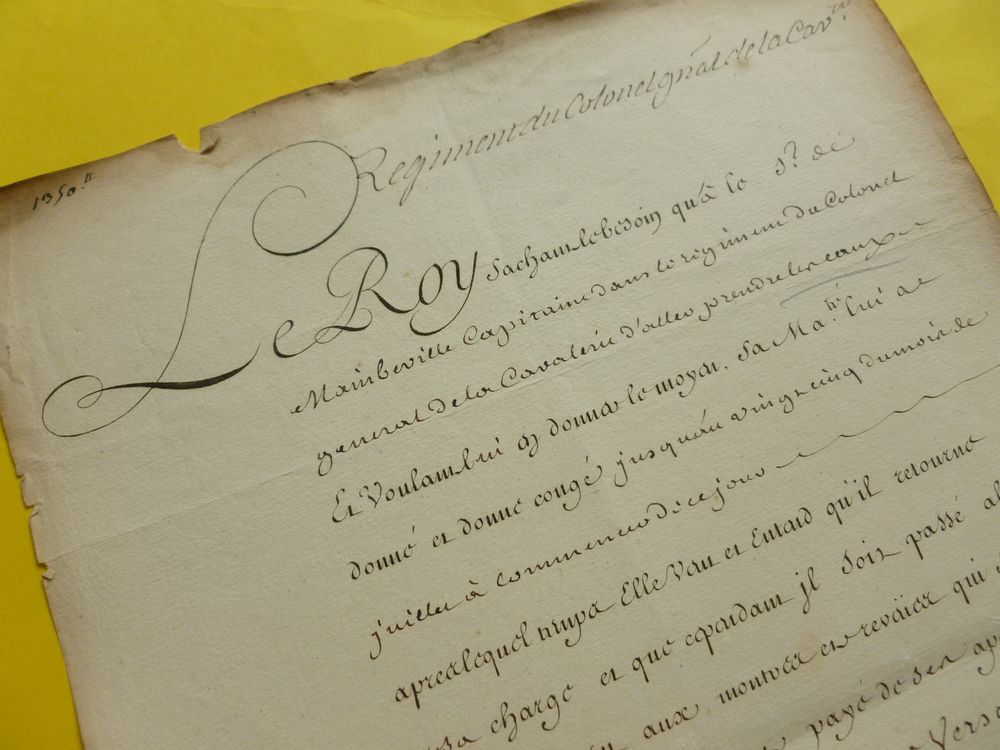 Regiment du Colonel gñal de la Cav.rie
1350.tt
Le Roy Sachant le besoin qu'à le S.r de
Mainbeville Capitaine dans le regiment du Colonel
general de la Cavalerie d'aller prendre les eaux
Et Voulant lui en donner le moyen. Sa Ma.té lui a
donné et donne congé jusqu'au vingt cinq du mois de
juillet à commencer de ce jour
apres lequel temps Elle Veut et Entend qu'il retourne
sa charge et que cependant jl Soit passé
aux montres et revües qui
payé de ses ap
Vers